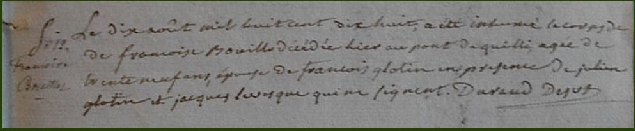 Sp 12.
françoise
Bouillo
Le dix août mil huit cent dix huit, a été inhumé le corps de
de françoise Bouillo décédée hier au pont de quilli, agée de
trente neuf ans, épouse de francois glotin en presence de julien
glotin et jacques levesque qui ne signent. Durand Desst